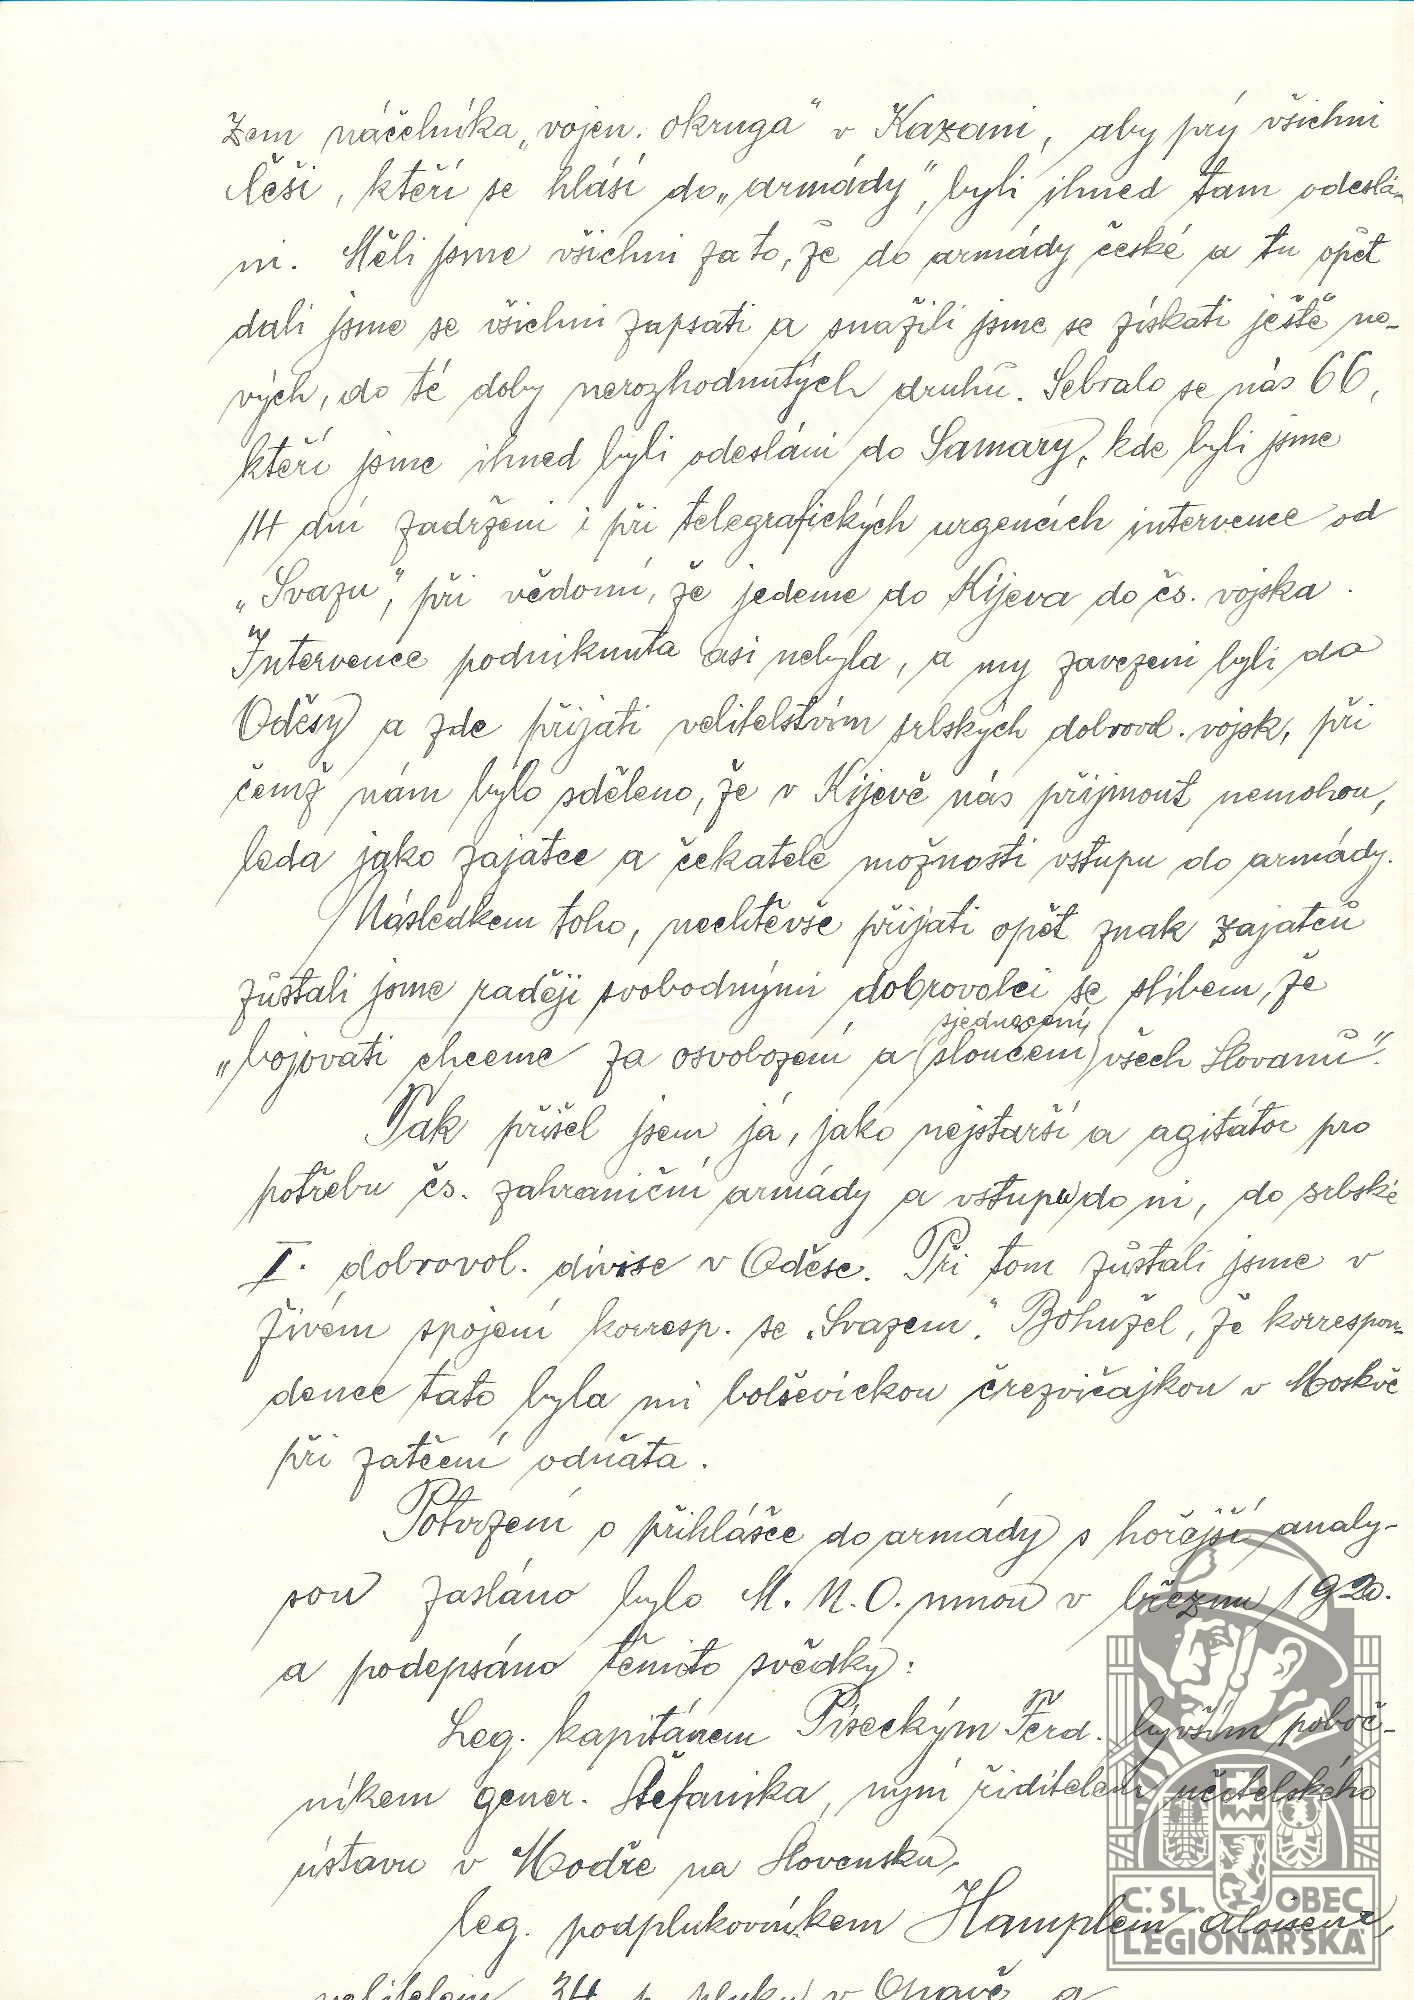 zem náčelníka „vojen. okruga“ v Kazani, aby prý všichni
Češi, kteří se hlásí do „armády“, byli ihned tam odeslá-
ni. Měli jsme všichni za to, že do armády české a tu opět
dali jsme se všichni zapsati a snažili jsme se získati ještě no-
vých, do té doby nerozhodnutých druhů. Sebralo se nás 66,
kteří jsme ihned byli odesláni do Samary, kde byli jsme
14 dní zadrženi i při telegrafických urgencích intervence od
„Svazu“, při vědomí, že jedeme do Kijeva do čs. vojska.
Intervence podniknuta asi nebyla, a my zavezeni byli do
Oděsy a zde přijati velitelstvím srbských dobrovol. vojsk, při
čemž nám bylo sděleno, že v Kijevě nás přijmout nemohou,
leda jako zajatce a čekatele možnosti vstupu do armády.
Následkem toho, nechtěvše přijati opět znak zajatců
zůstali jsme raději svobodnými dobrovolci se slibem, že
sjednocení
„bojovati chceme za osvobození a (sloučení) všech Slovanů“.
Tak přišel jsem já, jako nejstarší a agitátor pro
potřebu čs. zahraniční armády a vstupu do ní, do srbské
I. dobrovol. divise v Oděse. Při tom zůstali jsme v
živém spojení korresp. se „Svazem“. Bohužel, že korrespon-
dence tato byla mi bolševickou črezvičajkou v Moskvě
při zatčení odňata.
Potvrzení o přihlášce do armády s hořejší analy-
sou zasláno bylo M.N.O. mnou v březnu 1920.
a podepsáno těmito svědky:
Leg. kapitánem Píseckým Ferd. bývším poboč-
níkem gener. Štefanika, nyní řiditelem učitelského
ústavu v Modře na Slovensku,
leg. podplukovníkem Hamplem Aloisem,
velitelem 34 p. pluku v Opavě a
Č.SL. OBEC
LEGIONÁŘSKÁ